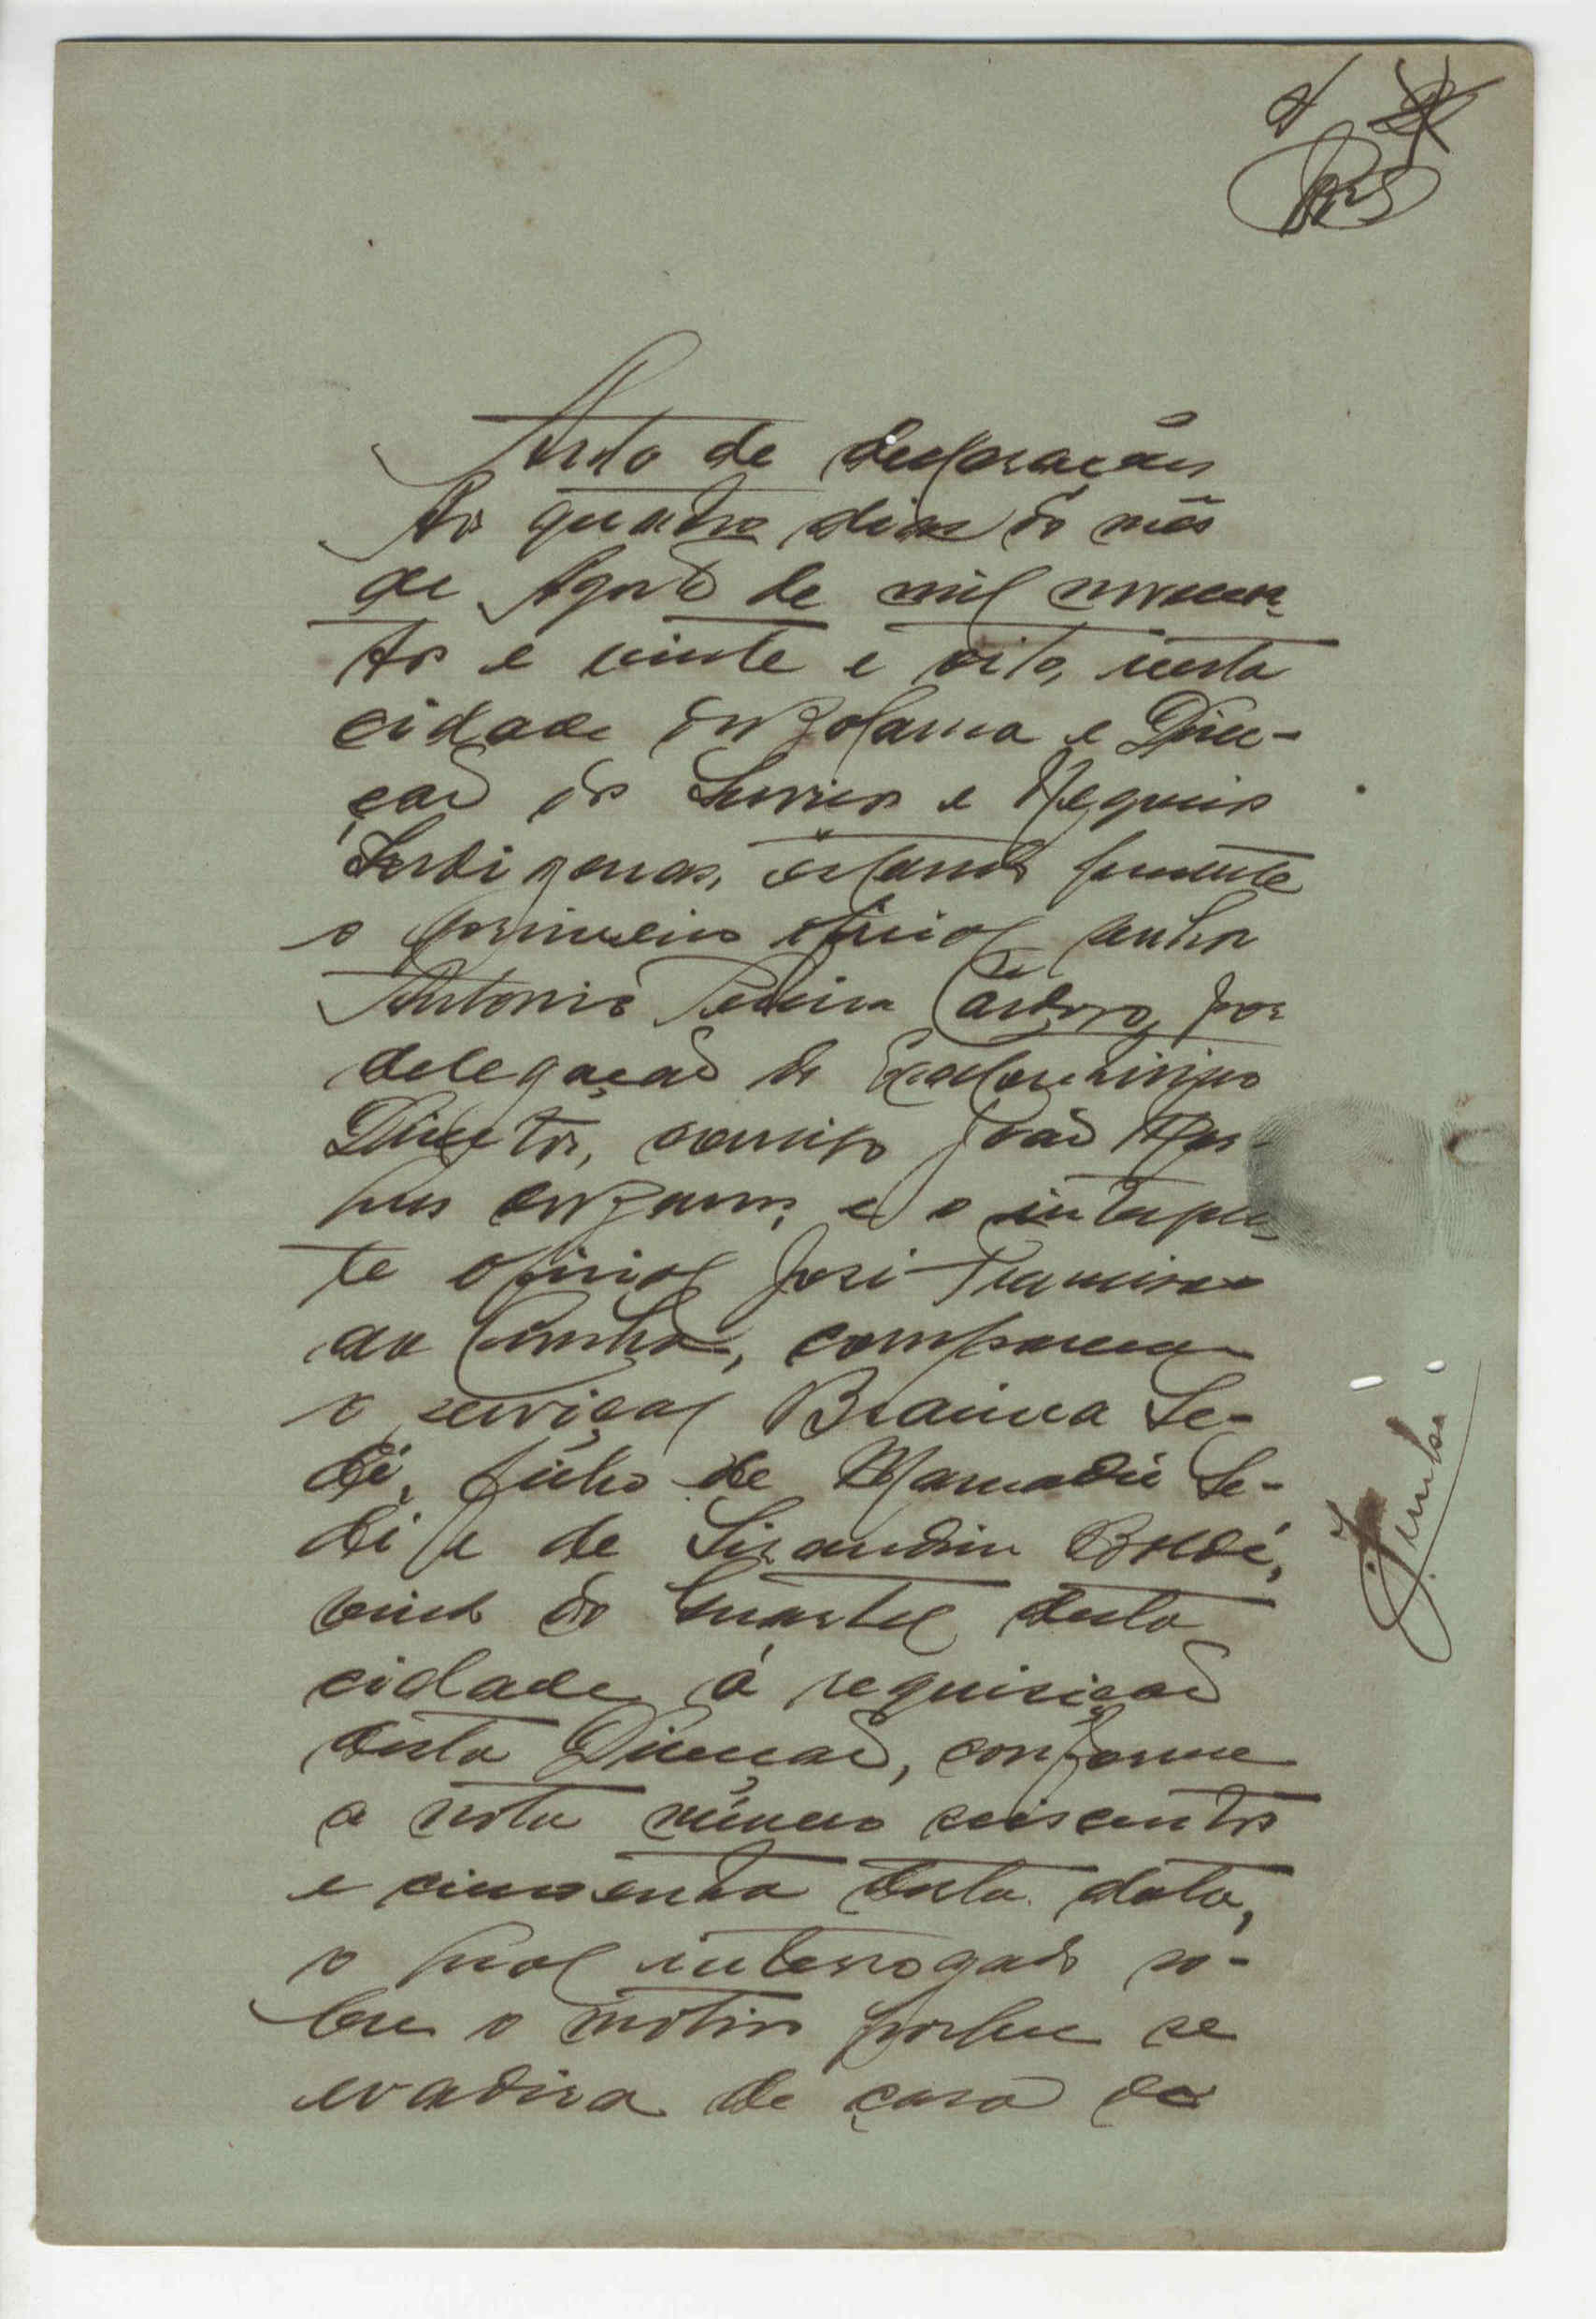 Auto de declarações
Aos quatro dias do mês
de Agosto de mil novecen-
tos e vinte e oito, nesta
cidade de Bolama e Direc-
ção dos Serviços e Negocios
Indigenas, estando presente
o primeiro oficial senhor
Antonio Pereira Cardoso, por
delegação do Excelentissimo
Director, comigo João
e o interpre-
te oficial José
da Cunha, compareceu
o serviçal Braima Se-
di, filho de Mamadú Se-
di e de Baldé,
vindo do Quartel desta
cidade á requisição
desta Direcção, conforme
a nota número seiscentos
e cincoenta desta data,
o qual interrogado so-
bre o motivo porque se
evadira de casa do
Cunha